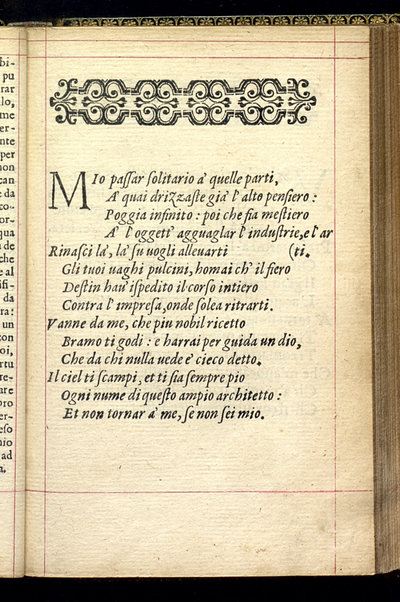 MIo passar solitario a' quelle parti,
A' quai drizzaste gia' l' alto pensiero:
Poggia infinito: poi che sia mestiero
A' l' oggett' agguaglar l' industrie, e l' ar
Rinasci la', la' su uogli alleuarti (ti.
Gli tuoi uaghi pulcini, homai ch' il fiero
Destin hau' ispedito il corso intiero
Contra l' impresa, onde solea ritrarti.
Vanne da me, che piu nobil ricetto
Bramo ti godi: e harrai per guida un dio,
Che da chi nulla uede è cieco detto.
Il ciel ti scampi, et ti sia sempre pio
Ogni nume di questo ampio architetto:
Et non tornar a' me, se non sei mio.